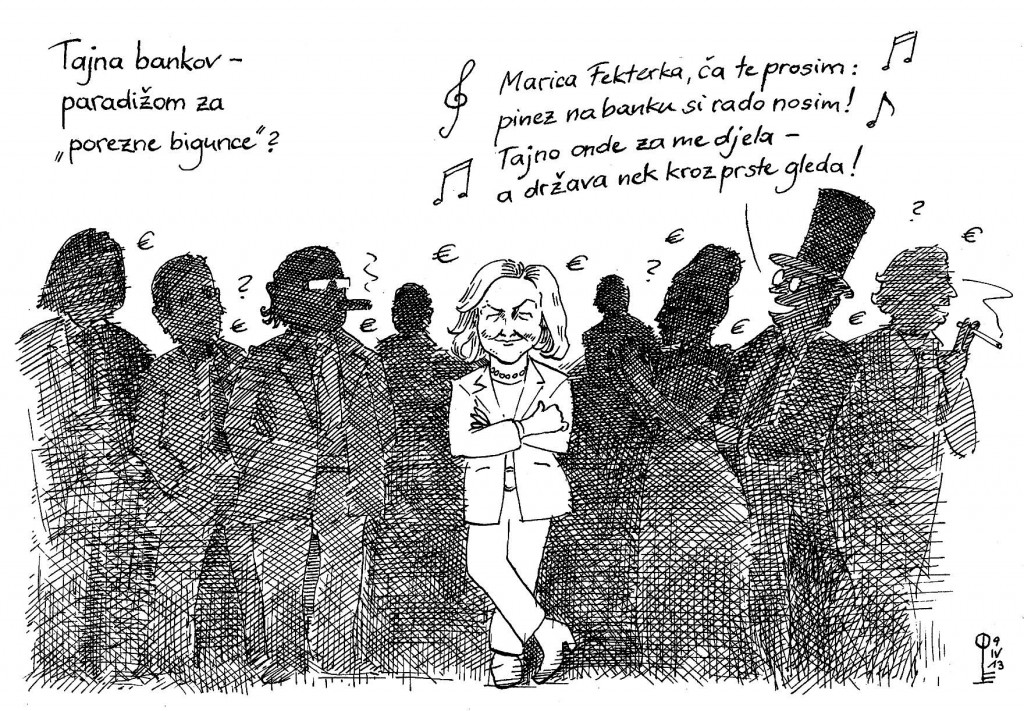 Tajna bankov –
paradižom za
„porezne bigunce“?
Marica Fekterka, ča te prosim:
pinez na banku si rado nosim!
Tajno onde za me djela –
a država nek kroz prste gleda!
€ ? € € € € ? € € € ? €
9
IV
13